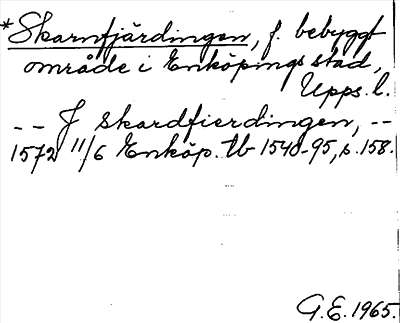 *Skarnfjärdingen, f. bebyggt
område i Enköpings stad,
Upps. l.
-- J skardfierdingen, --
1572 11/6 Enköp. tb 1540-95, s. 158.
G.E. 1965.